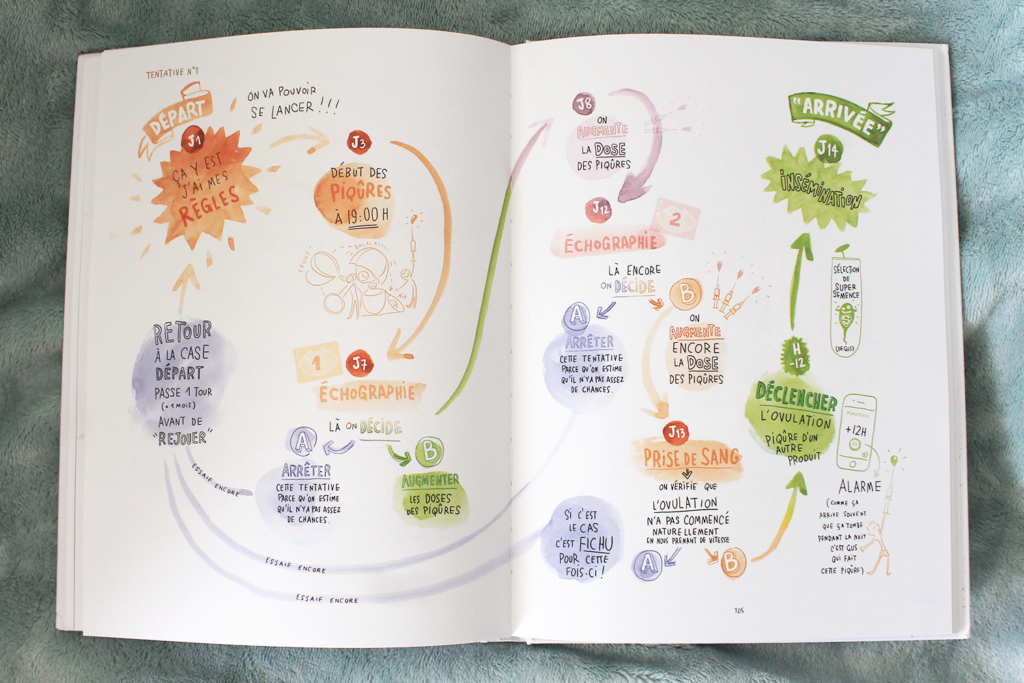 TENTATIVE N°1
DÉPART
ON VA POUVOIR
SE LANCER !!!
J1
ÇA Y EST
J'AI MES
RÈGLES
J3
DÉBUT DES
PIQÛRES
À 19:00 H
RETOUR
À LA CASE
DÉPART
PASSE 1 TOUR
(= 1 MOIS)
AVANT DE
"REJOUER"
1
J7
ÉCHOGRAPHIE
LÀ ON DÉCIDE
A
ARRÊTER
CETTE TENTATIVE
PARCE QU'ON ESTIME
QU'IL N'Y A PAS ASSEZ
DE CHANCES.
B
AUGMENTER
LES DOSES
DES PIQÛRES
ESSAIE ENCORE
ESSAIE ENCORE
ESSAIE ENCORE
J8
ON
AUGMENTE
LA DOSE
DES PIQÛRES
J12
2
ÉCHOGRAPHIE
LÀ ENCORE
ON DÉCIDE
A
ARRÊTER
CETTE TENTATIVE
PARCE QU'ON ESTIME
QU'IL N'Y A PAS ASSEZ
DE CHANCES.
B
ON
AUGMENTE
ENCORE
LA DOSE
DES PIQÛRES
J13
PRISE DE SANG
ON VÉRIFIE QUE
L'OVULATION
N'A PAS COMMENCÉ
NATURELLEMENT
EN NOUS PRENANT DE VITESSE
A
B
SI C'EST
LE CAS
C'EST FICHU
POUR CETTE
FOIS-CI !
"ARRIVÉE"
J14
INSÉMINATION
SÉLECTION
DE
SUPER
SEMENCE
S
(DE GUS)
H
12
DÉCLENCHER
L'OVULATION
PIQÛRE D'UN
AUTRE
PRODUIT
+12H
ALARME
(COMME ÇA
ARRIVE SOUVENT
QUE ÇA TOMBE
PENDANT LA NUIT
C'EST GUS
QUI FAIT
CETTE PIQÛRE)
105